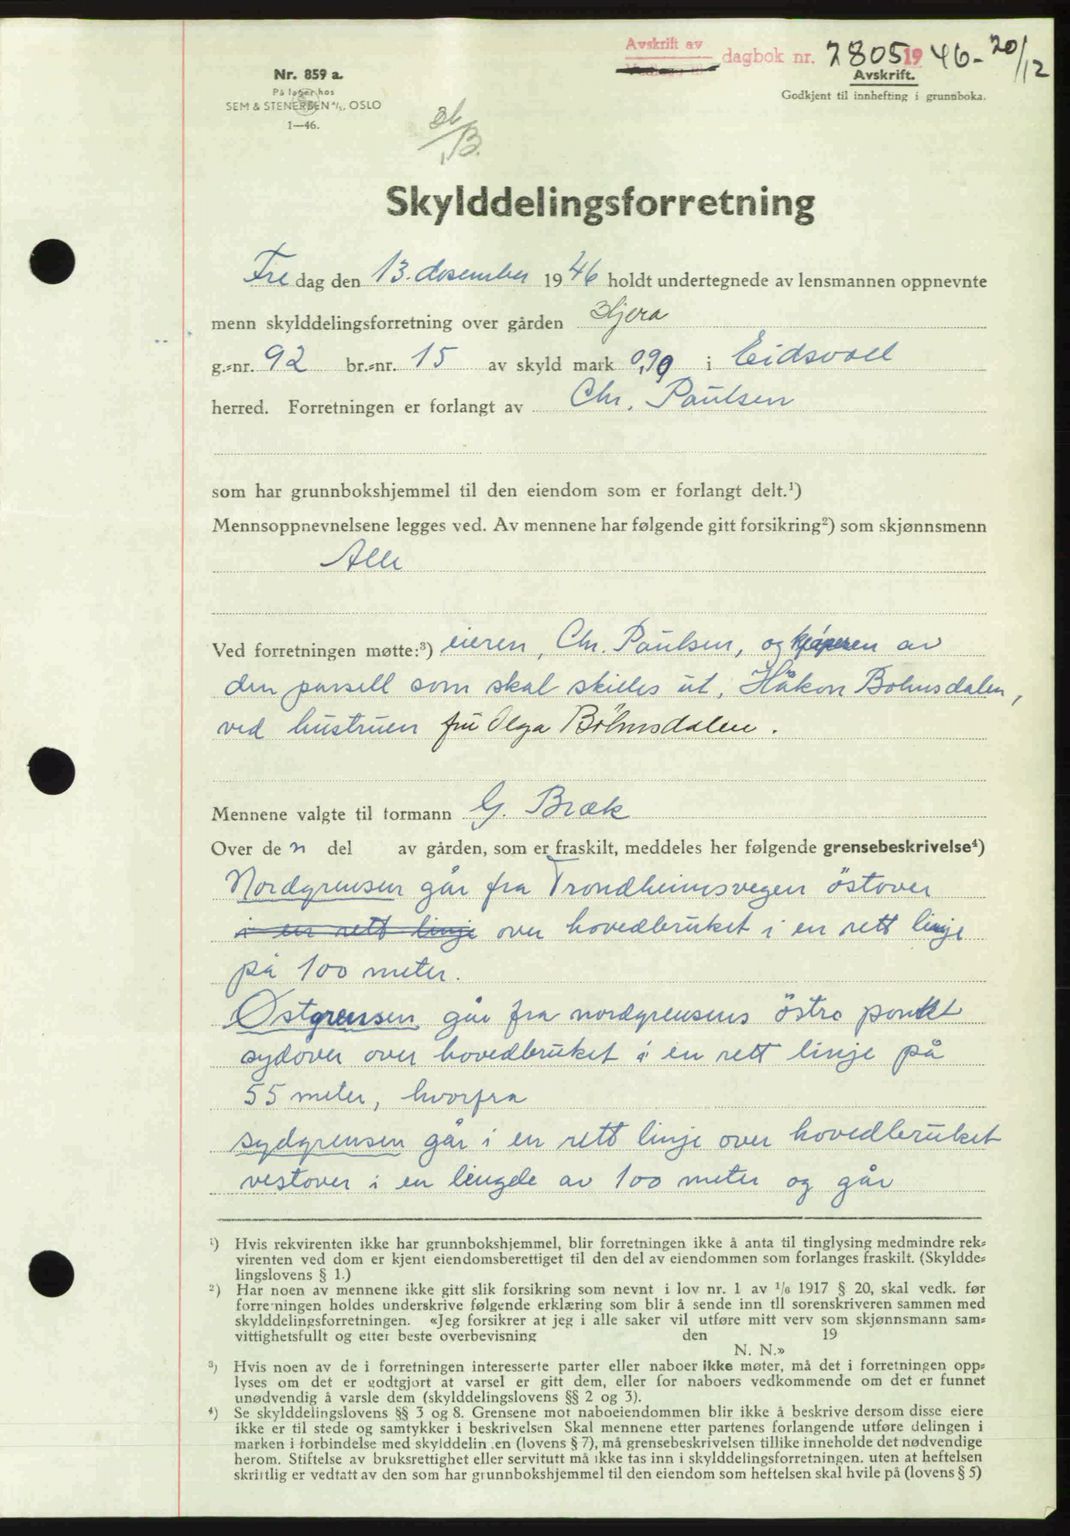 Avskrift av dagbok nr. 2805 1946 - 20/12
Nr. 859 a.
På lager hos
SEM & STENERSEN A/S, OSLO
1—46.
Avskrift.
Godkjent til innhefting i grunnboka.
Skylddelingsforretning
Fredag den 13. desember 1946 holdt undertegnede av lensmannen oppnevnte
menn skylddelingsforretning over gården
g.=nr. 92 br.=nr. 15 av skyld mark 0,90 i Eidsvoll
herred. Forretningen er forlangt av Chr. Paulsen
som har grunnbokshjemmel til den eiendom som er forlangt delt.¹)
Mennsoppnevnelsene legges ved. Av mennene har følgende gitt forsikring²) som skjønnsmenn
Alle
Ved forretningen møtte:³) eieren, Chr. Paulsen, og kjøperen av
den parsell som skal skilles ut, Håkon Bøhnsdalen,
ved hustruen fru Olga Böhnsdalen.
Mennene valgte til formann G. Bræk
Over den del av gården, som er fraskilt, meddeles her følgende grensebeskrivelse⁴)
Nordgrensen går fra Trondheimsvegen östover
i en rett linje over hovedbruket i en rett linje
på 100 meter.
Østgrensen går fra nordgrensens östre punkt
sydover over hovedbruket i en rett linje på
55 meter, hvorfra
sydgrensen går i en rett linje over hovedbruket
vestover i en lengde av 100 meter og går
¹) Hvis rekvirenten ikke har grunnbokshjemmel, blir forretningen ikke å anta til tinglysing medmindre rek=
virenten ved dom er kjent eiendomsberettiget til den del av eiendommen som forlanges fraskilt. (Skyldde=
lingslovens § 1.)
²) Har noen av mennene ikke gitt slik forsikring som nevnt i lov nr. 1 av 1/6 1917 § 20, skal vedk. før
forretningen holdes underskrive følgende erklæring som blir å sende inn til sorenskriveren sammen med
skylddelingsforretningen. «Jeg forsikrer at jeg i alle saker vil utføre mitt verv som skjønnsmann sam=
vittighetsfullt og etter beste overbevisning den 19
N. N.»
³) Hvis noen av de i forretningen interesserte parter eller naboer ikke møter, må det i forretningen opp=
lyses om det er godtgjort at varsel er gitt dem, eller for naboers vedkommende om det er funnet
unødvendig å varsle dem (skylddelingslovens §§ 2 og 3).
⁴) Se skylddelingslovens §§ 3 og 8. Grensene mot naboeiendommen blir ikke å beskrive dersom disse eiere
ikke er til stede og samtykker i beskrivelsen Skal mennene etter partenes forlangende utføre delingen i
marken i forbindelse med skylddelin en (lovens § 7), må grensebeskrivelsen tillike inneholde det nødvendige
herom. Stiftelse av bruksrettighet eller servitutt må ikke tas inn i skylddelingsforretningen. uten at heftelsen
skriftlig er vedtatt av den som har grunnbokshjemmel til den eiendom som heftelsen skal hvile på (lovens § 5)